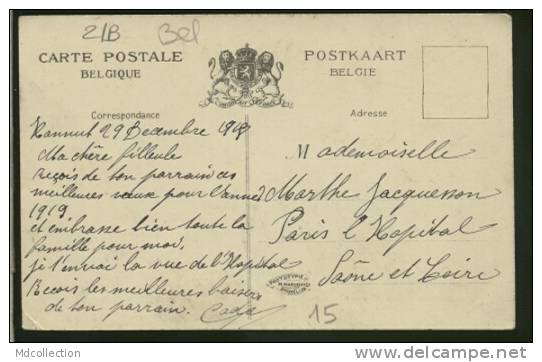 21B
Bel
CARTE POSTALE
BELGIQUE
POSTKAART
BELGIE
Correspondance
Adresse
Hannut 29 Decembre 1918
Ma chère filleule
Reçois de ton parrain ces
meilleures vœux pour l'année
1919.
et embrasse bien toute la
famille pour moi,
je t'envoi la vue de l'Hopital
Recois les meilleures baisers
de ton parrain.
Mademoiselle
Marthe Jacquesson
Paris l'Hopital
Saône et Loire
15
Mdcollection
www.delcampe.net